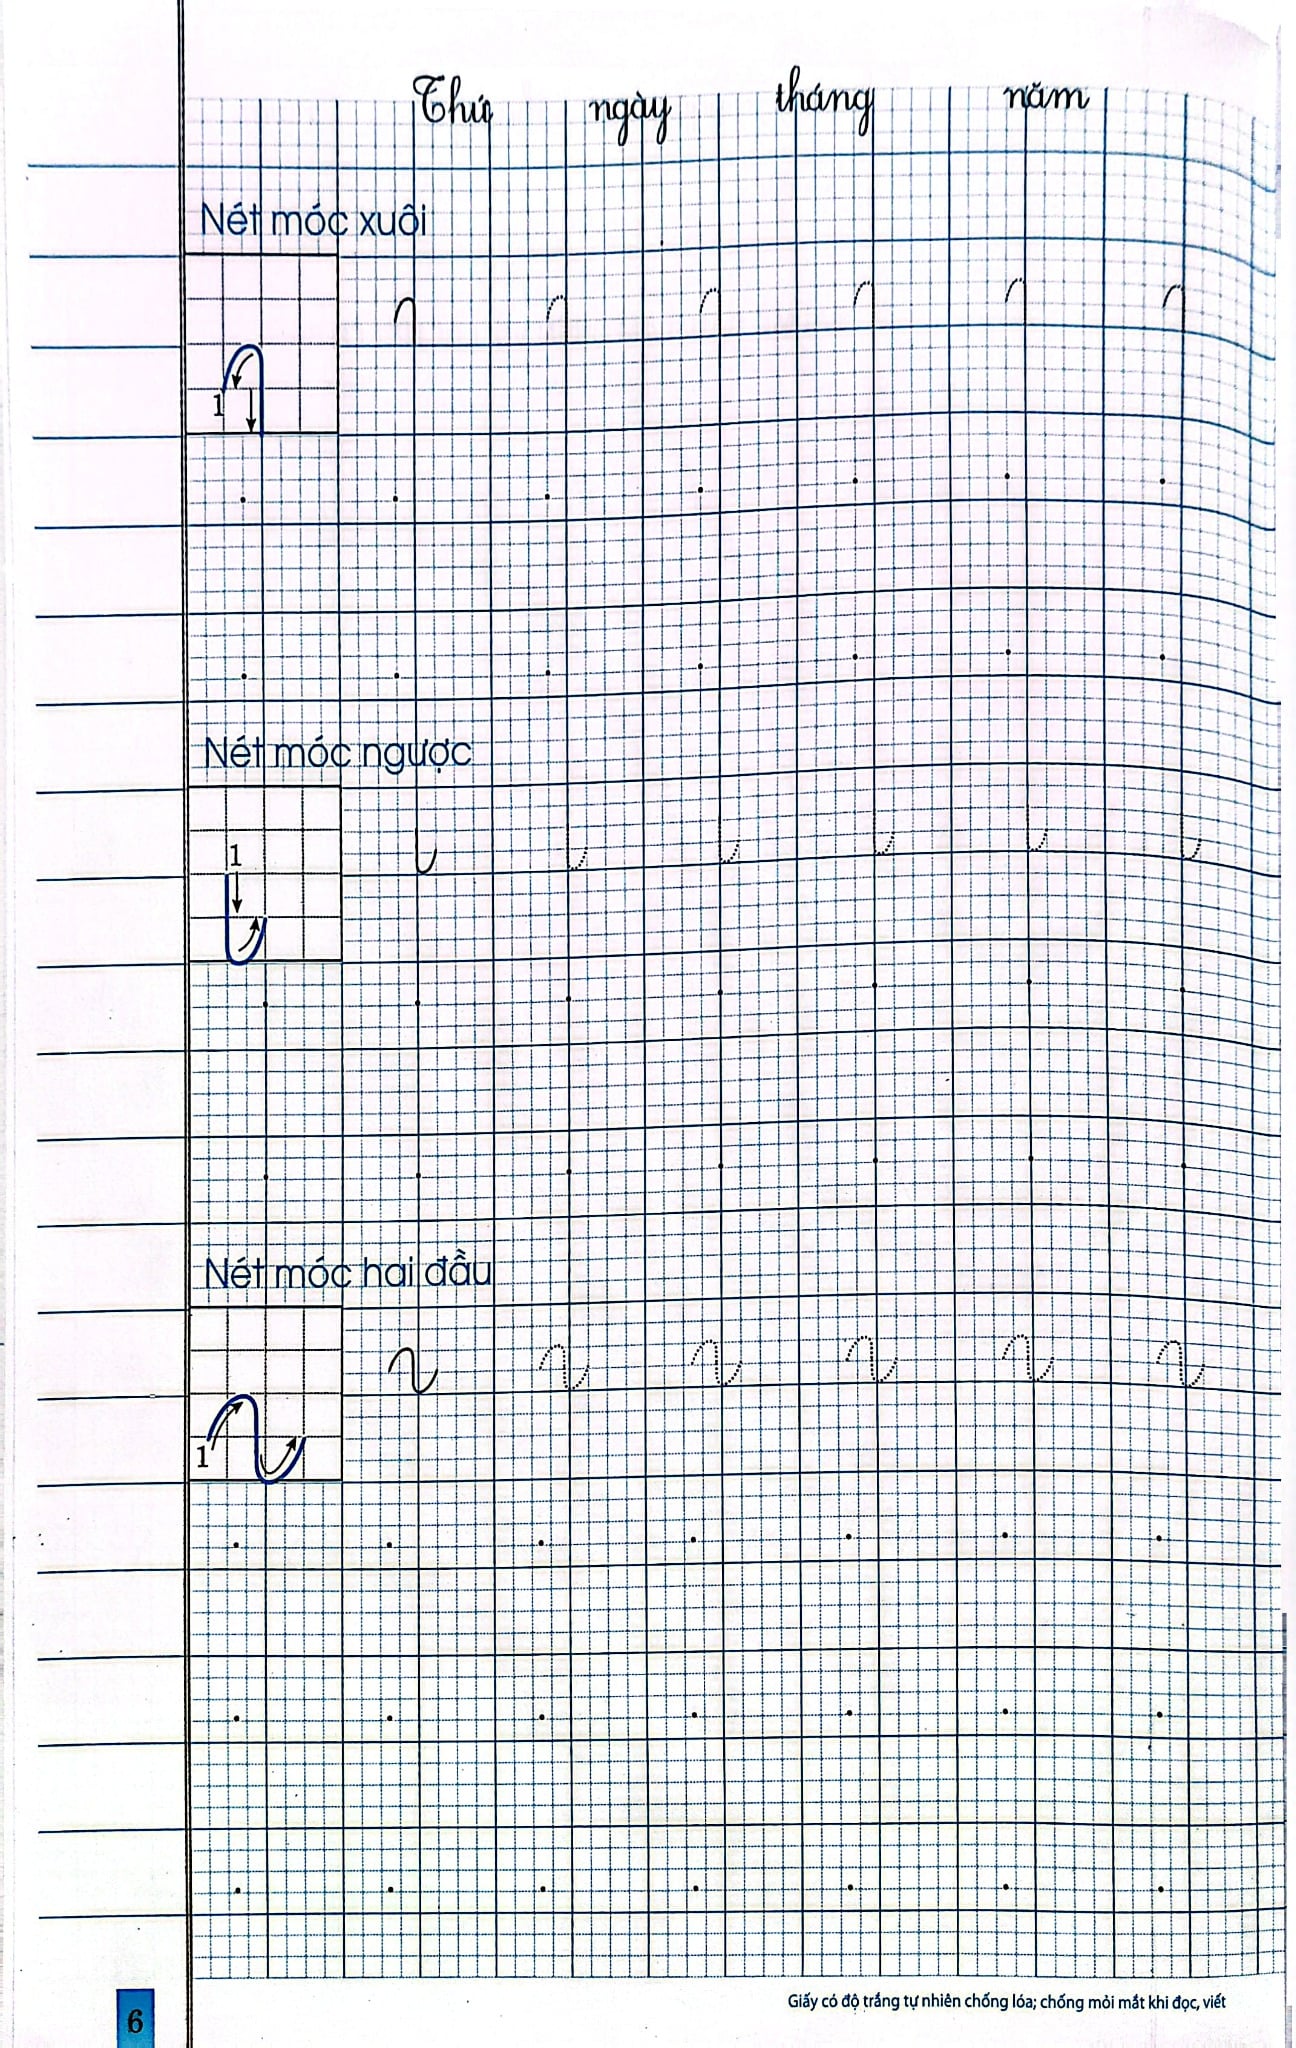 Thứ ngày tháng năm
Nét móc xuôi
1
Nét móc ngược
1
Nét móc hai đầu
1
Giấy có độ trắng tự nhiên chống lóa; chống mỏi mắt khi đọc, viết
6